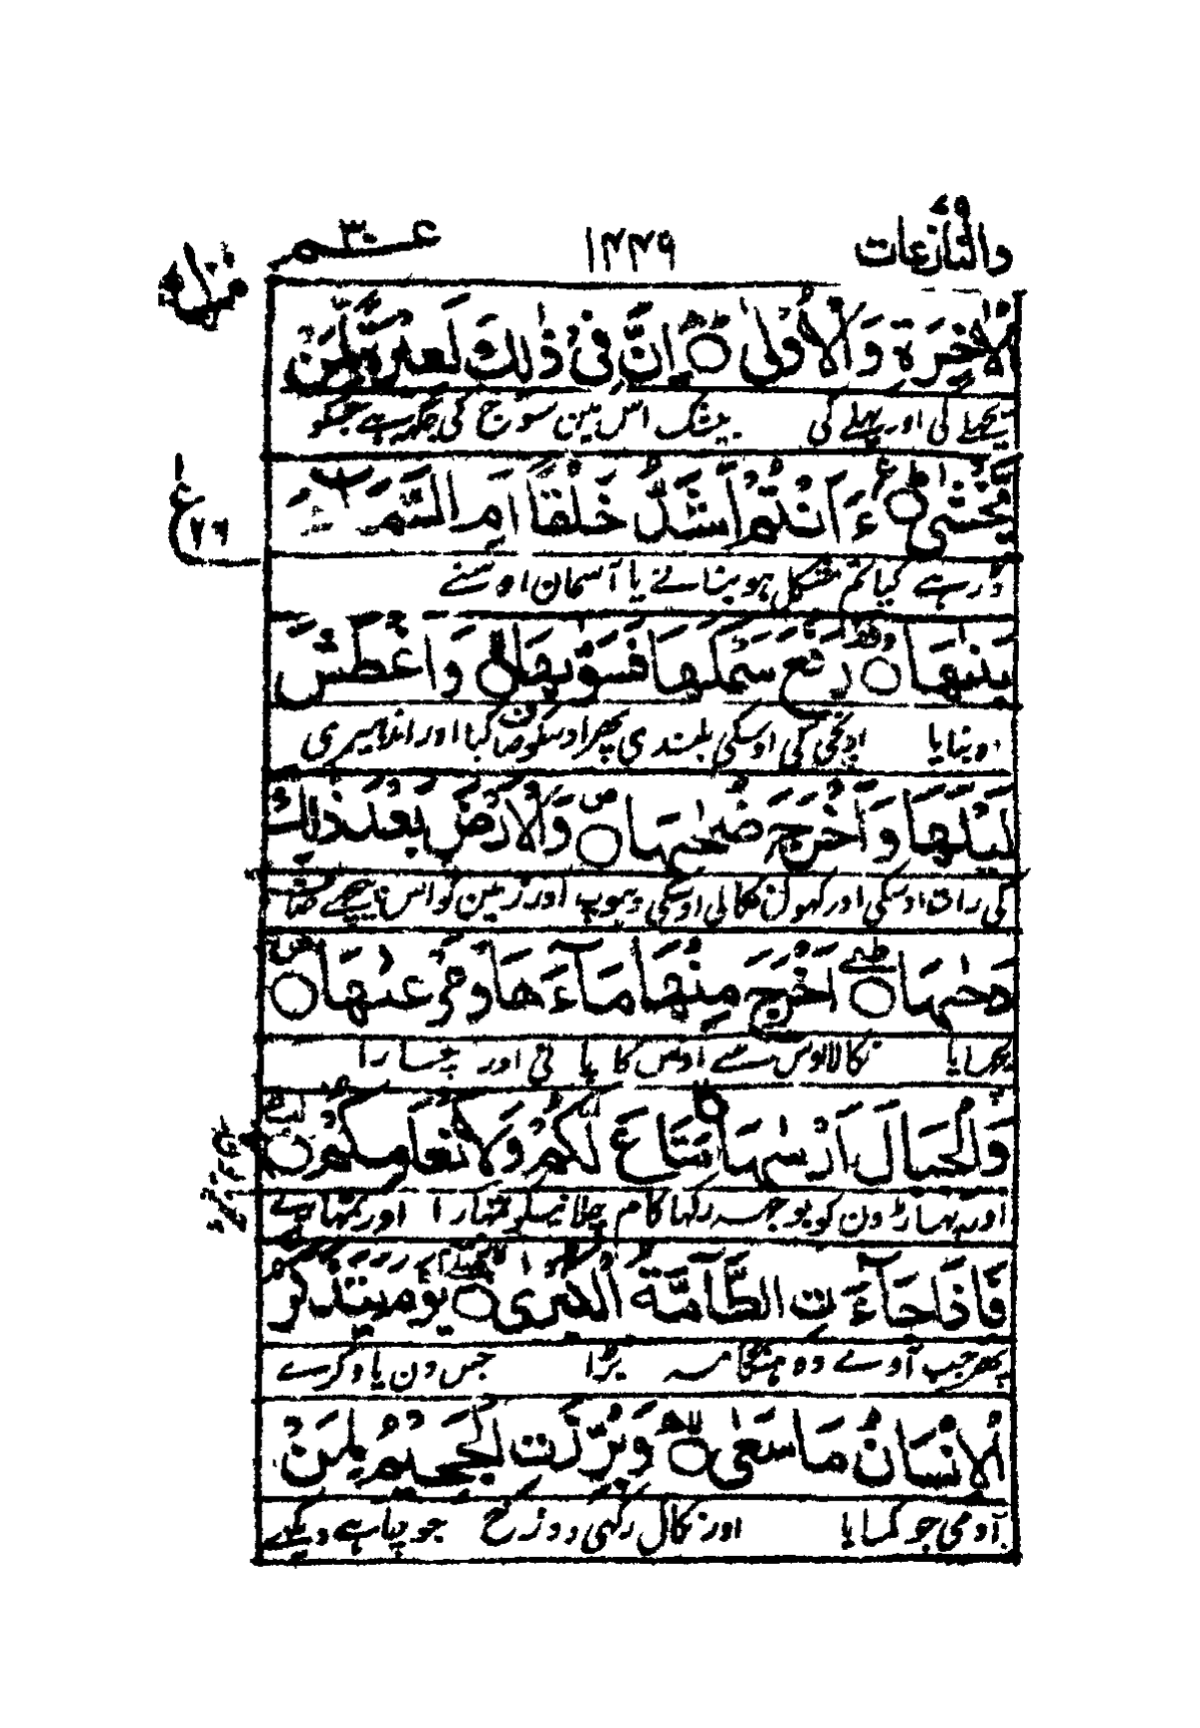 والنازعات ٧٩ ١٢٤٩ عــم ٣٠
الْاٰخِرَةِ وَالْاُوْلٰى ۝ اِنَّ فِىْ ذٰلِكَ لَعِبْرَةً لِّمَنْ
پچھلے کی اور پہلے کی بیشک اس مین سوچ کی جگہ ہے جسکو
يَّخْشٰى ۝ ءَاَنْتُمْ اَشَدُّ خَلْقًا اَمِ السَّمَآءُ
ع ٢٦
ڈر ہے کیا تم مشکل ہو بنانے یا آسمان اوسنے
بَنٰىهَا ۝ رَفَعَ سَمْكَهَا فَسَوّٰىهَا ۝ وَاَغْطَشَ
وہ بنایا اونچی کی اوسکی بلندی پھر اوسکو صاف کیا اور اندھیری
لَيْلَهَا وَاَخْرَجَ ضُحٰىهَا ۝ وَالْاَرْضَ بَعْدَ ذٰلِكَ
کی رات اوسکی اور کھول نکالی اوسکی دہوپ اور زمین کو اس پیچھے صاف
دَحٰىهَا ۝ اَخْرَجَ مِنْهَا مَآءَهَا وَمَرْعٰىهَا ۝
بچھایا نکالا اوس سے اوس کا پانی اور چارا
وَالْجِبَالَ اَرْسٰىهَا ۝ مَتَاعًا لَّكُمْ وَلِاَنْعَامِكُمْ ۝
اور پہاڑون کو بوجھہ رکھا کام چلانیکو تمہارا اور تمہارے
فَاِذَا جَآءَتِ الطَّآمَّةُ الْكُبْرٰى ۝ يَوْمَ يَتَذَكَّرُ
پھر جب آوے وہ ہنگامہ بڑا جس دن یاد کرے
الْاِنْسَانُ مَا سَعٰى ۝ وَبُرِّزَتِ الْجَحِيْمُ لِمَنْ
آدمی جو کمایا اور نکال رکھی دوزخ جو چاہے دیکھے